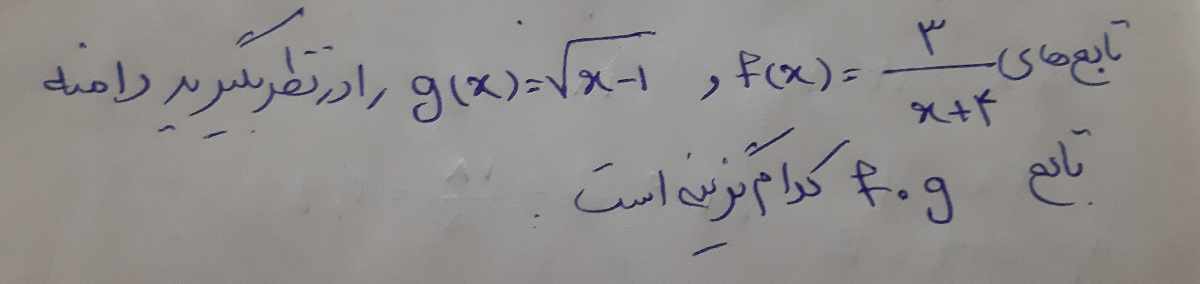 تابع‌های f(x) = ۳/(x+۴) و g(x) = √(x-1) را در نظر بگیرید دامنه
تابع f∘g کدام گزینه است.